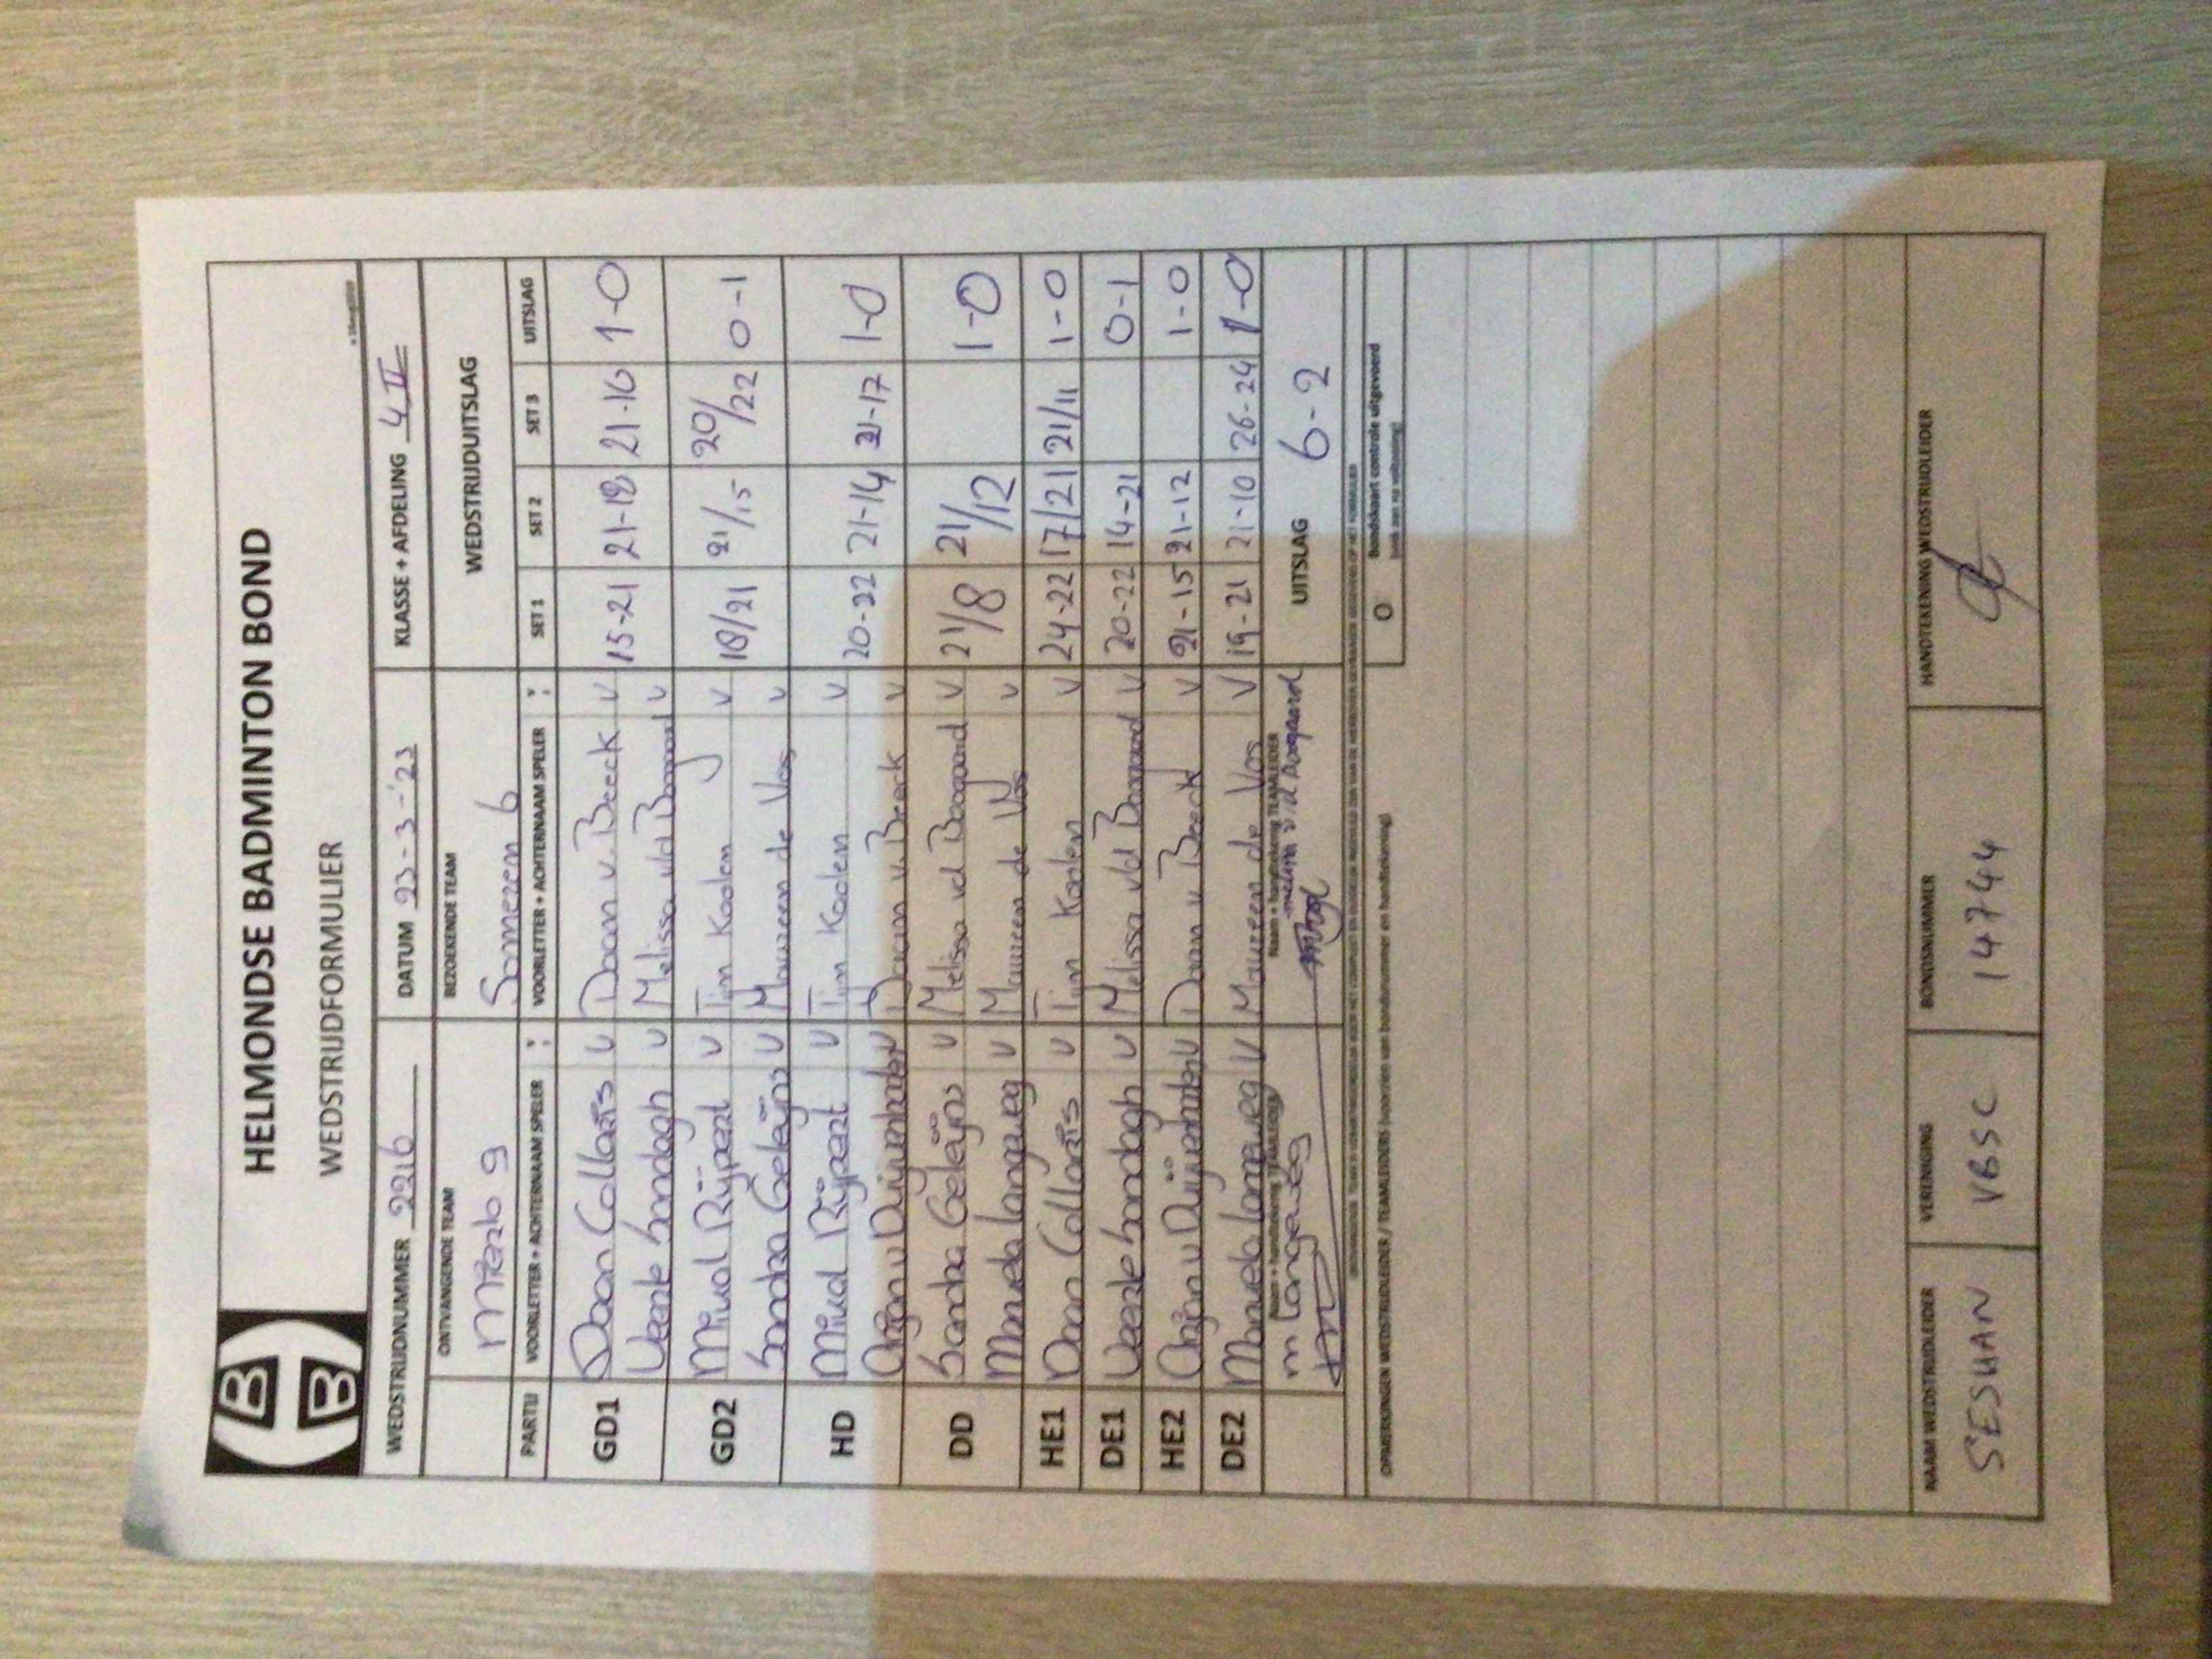 HELMONDSE BADMINTON BOND
WEDSTRIJDFORMULIER
WEDSTRIJDNUMMER 2216 DATUM 23-3-'23 KLASSE + AFDELING 4 II
ONTVANGENDE TEAM BEZOEKENDE TEAM WEDSTRIJDUITSLAG
Mierlo 9 Someren 6
PARTIJ VOORLETTER + ACHTERNAAM SPELER VOORLETTER + ACHTERNAAM SPELER SET 1 SET 2 SET 3 UITSLAG
GD1 Daan Collaris V Daan v. Breek V 15-21 21-18 21-16 1-0
Veerle Sondagh V Melissa vd Boogaard V
GD2 Miwal Rijpert V Tijn Koolen V 18/21 21/15 20/22 0-1
Sandra Geleijns V Maureen de Vos V
HD Miwal Rijpert V Tijn Koolen V 20-22 21-14 21-17 1-0
Arjan v Duijnhoven V Daan v. Breek V
DD Sandra Geleijns V Melissa vd Boogaard V 21/8 21/12 1-0
Manuela Langeweg V Maureen de Vos V
HE1 Daan Collaris V Tijn Koolen V 24-22 17/21 21/11 1-0
DE1 Veerle Sondagh V Melissa vd Boogaard V 20-22 14-21 0-1
HE2 Arjan v Duijnhoven V Daan v Breek V 21-15 21-12 1-0
DE2 Manuela Langeweg V Maureen de Vos V 19-21 21-10 26-24 1-0
Naam + handtekening TEAMLEIDER Naam + handtekening TEAMLEIDER
m Langeweg melissa v.d Boogaard UITSLAG 6-2
O bondskaart controle uitgevoerd
OPMERKINGEN WEDSTRIJDLEIDER / TEAMLEIDERS (voorzien van bondsnummer en handtekening)
NAAM WEDSTRIJDLEIDER VERENIGING BONDSNUMMER HANDTEKENING WEDSTRIJDLEIDER
SESHAN VBSC 14744